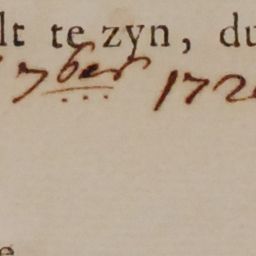 lt te zyn, du
7ber 172
e